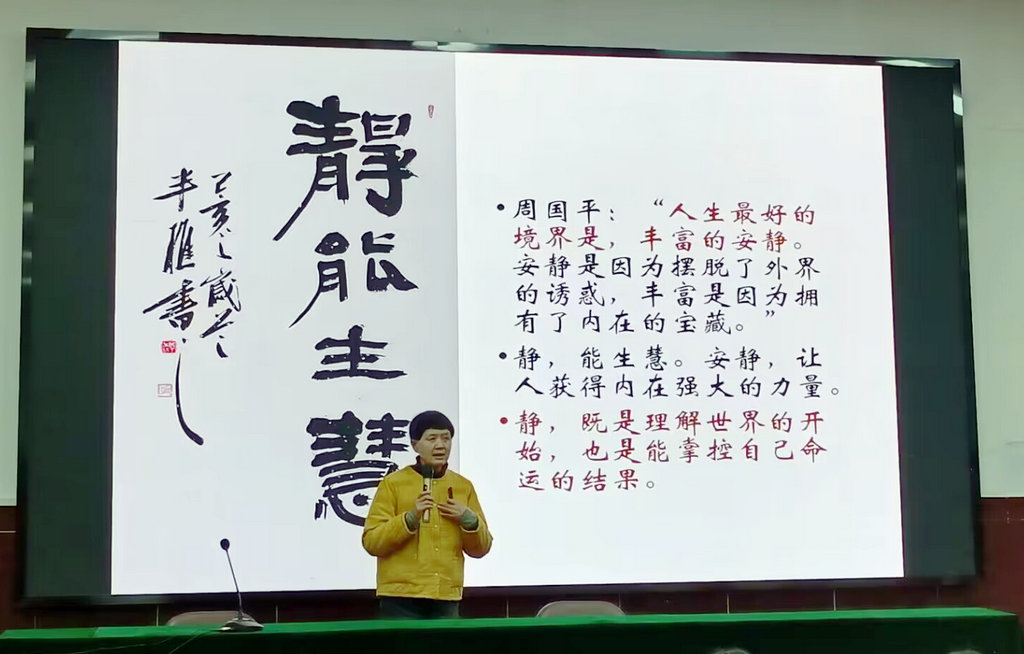 靜能生慧
己亥之歲冬
半雕書
•周国平：“人生最好的
境界是，丰富的安静。
安静是因为摆脱了外界
的诱惑，丰富是因为拥
有了内在的宝藏。”
•静，能生慧。安静，让
人获得内在强大的力量。
•静，既是理解世界的开
始，也是能掌控自己命
运的结果。